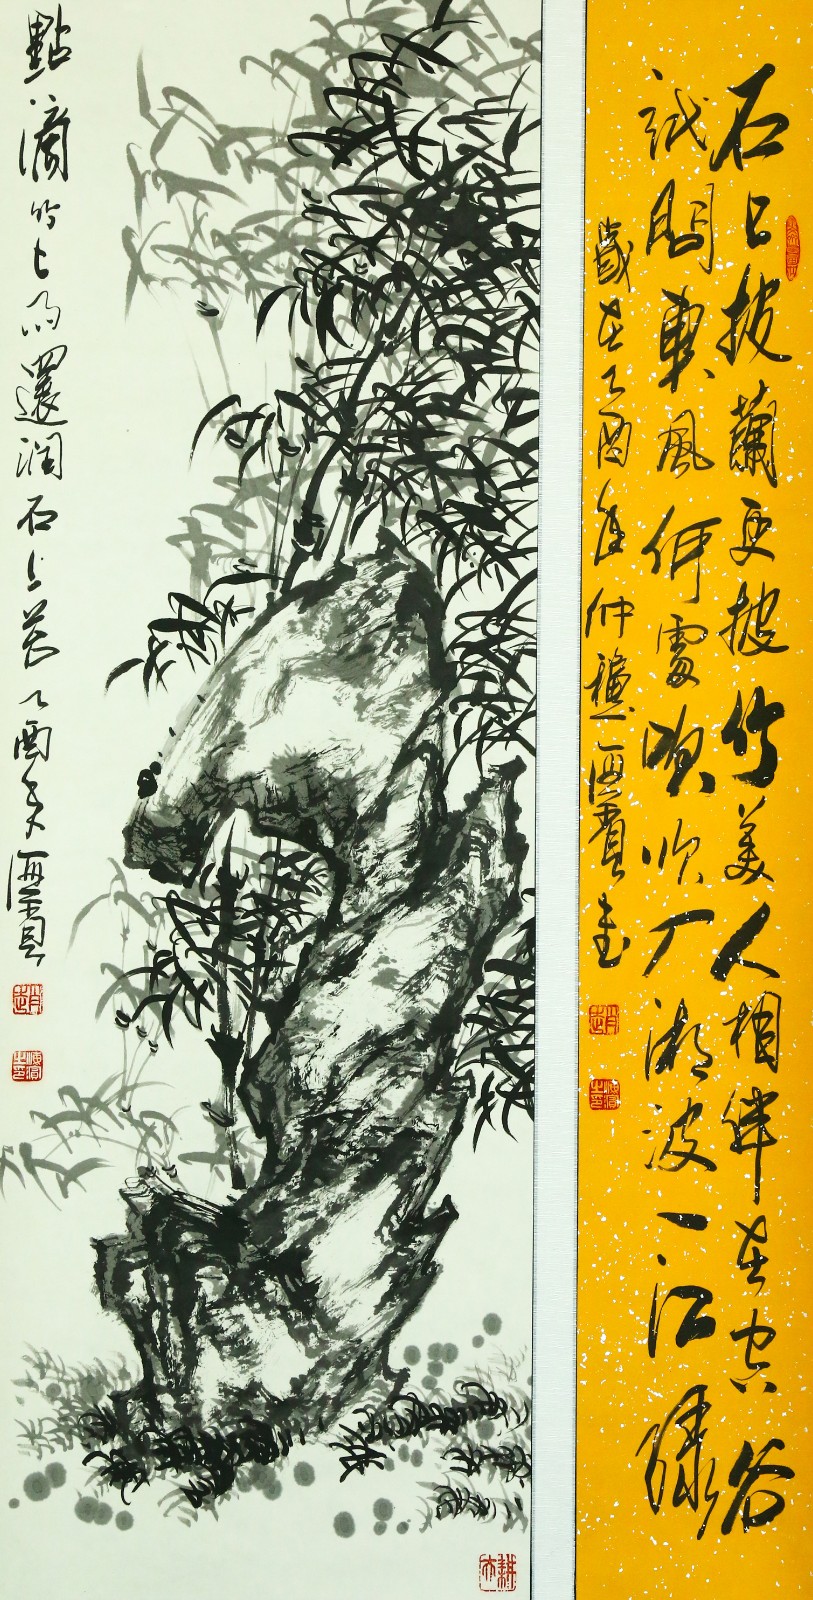 石上披蘭更披竹美人相伴在空谷
試問東風何處吹吹入湘波一江綠
歲在乙酉年仲穐海賓書
點滴竹上雨還潤石上苔乙酉冬海賓